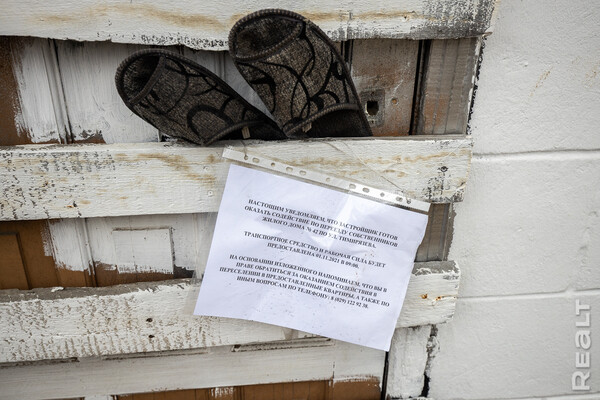 НАСТОЯЩИМ УВЕДОМЛЯЕМ, ЧТО ЗАСТРОЙЩИК ГОТОВ
ОКАЗАТЬ СОДЕЙСТВИЕ ПО ПЕРЕЕЗДУ СОБСТВЕННИКОВ
ЖИЛОГО ДОМА № 42 ПО УЛ. ТИМИРЯЗЕВА.
ТРАНСПОРТНОЕ СРЕДСТВО И РАБОЧАЯ СИЛА БУДЕТ
ПРЕДОСТАВЛЕНА 01.11.2021 В 09.00.
НА ОСНОВАНИИ ИЗЛОЖЕННОГО НАПОМИНАЕМ, ЧТО ВЫ В
ПРАВЕ ОБРАТИТЬСЯ ЗА ОКАЗАНИЕМ СОДЕЙСТВИЯ В
ПЕРЕСЕЛЕНИИ В ПРЕДОСТАВЛЕННЫЕ КВАРТИРЫ, А ТАКЖЕ ПО
ИНЫМ ВОПРОСАМ ПО ТЕЛЕФОНУ: 8 (029) 122 92 38.
REALT